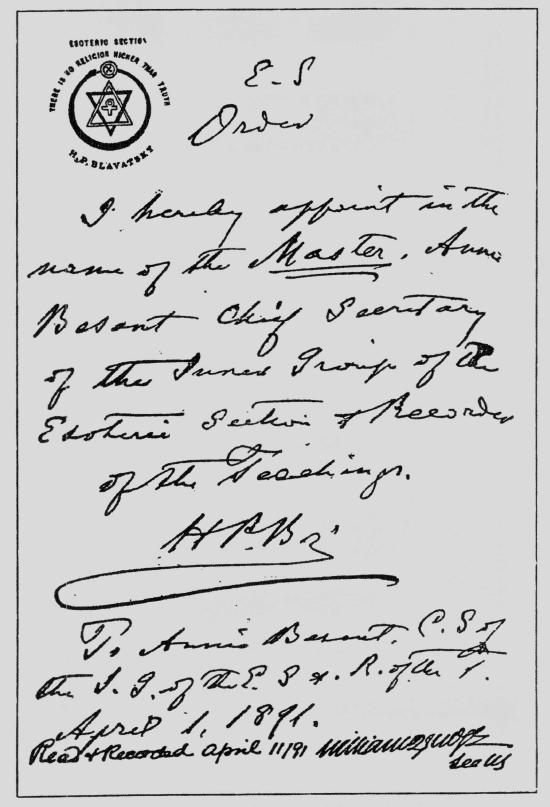 ESOTERIC SECTION
THERE IS NO RELIGION HIGHER THAN TRUTH
H.P. BLAVATSKY
E.S
Order
I hereby appoint in the
name of the Master, Annie
Besant Chief Secretary
of the Inner Group of the
Esoteric Section & Recorder
of the Teachings.
H.P.B.
To Annie Besant, C.S of
the I.G. of the E.S & R. of the T.
April 1, 1891.
Read & Recorded April 11/91 William Q Judge
Sec US